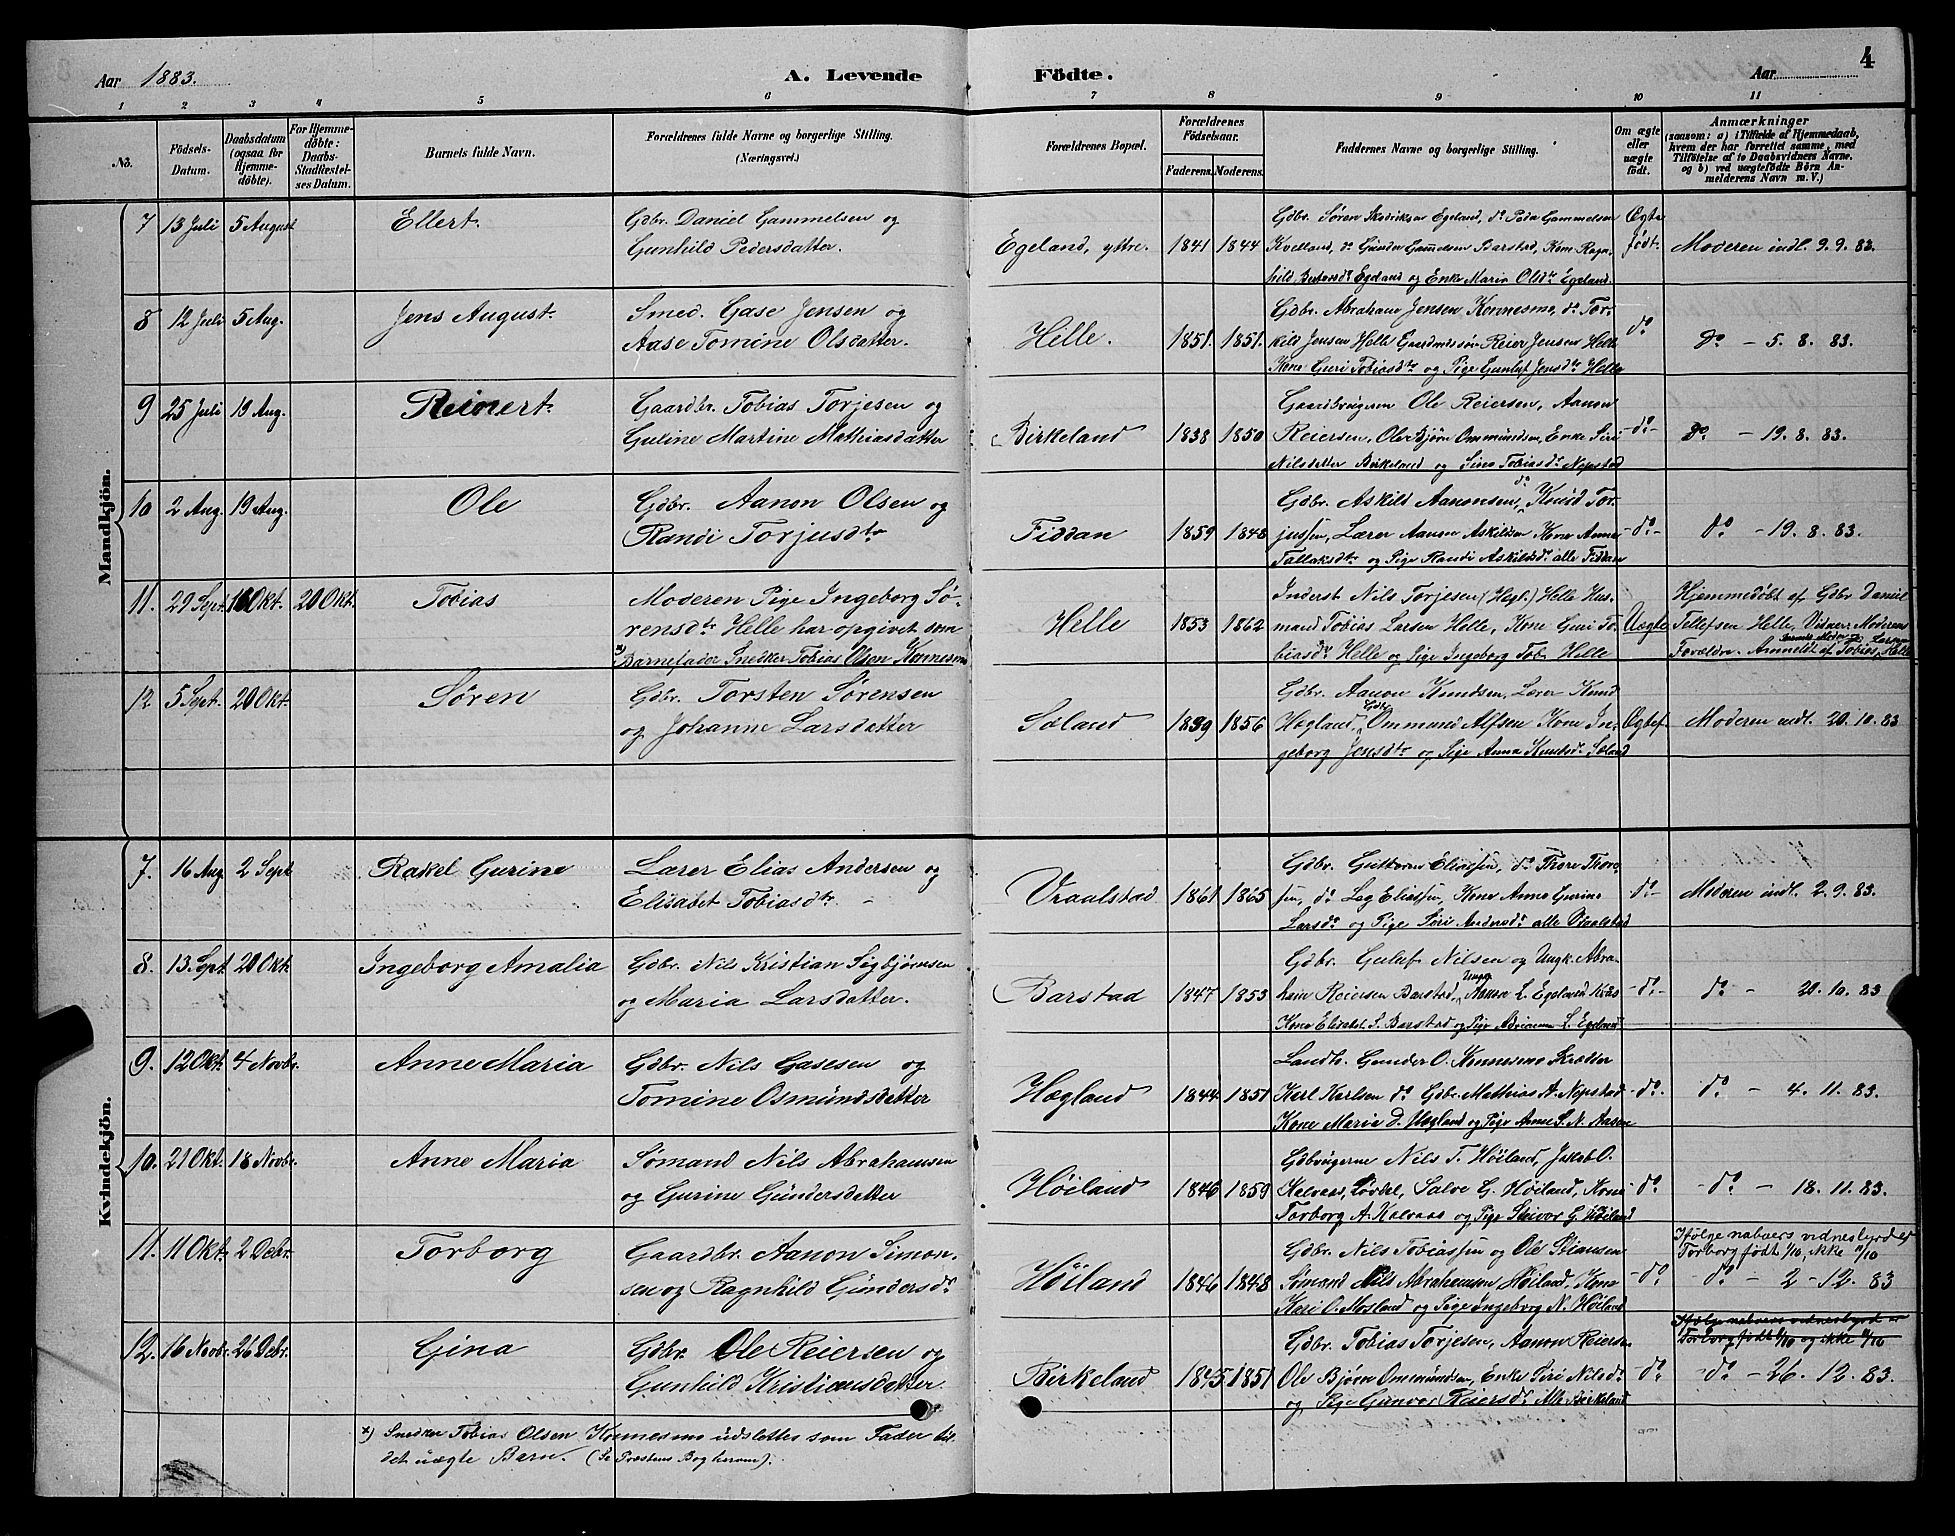 Aar 1883. A. Levende Fødte. Aar 4
1 2 3 4 5 6 7 8 9 10 11
No. Fødsels-Datum. Daabsdatum (ogsaa for Hjemmedøbte). For Hjemmedøbte: Daabs-Stadfæstelses Datum. Barnets fulde Navn. Forældrenes fulde Navne og borgerlige Stilling. (Næringsvei.) Forældrenes Bopæl. Forældrenes Fødselsaar. Faderens. Moderens. Faddernes Navne og borgerlige Stilling. Om ægte eller uægte født. Anmærkninger (saasom: a) i Tilfælde af Hjemmedaab, hvem der har forrettet samme, med Tilføielse af to Daabsvidners Navne, og b) ved uægtefødte Børn Anmelderens Navn m. V.)
Mandkjøn.
7 13 Juli 5 August Ellert. Gdbr. Daniel Gammelsen og
Gunhild Pedersdatter. Egeland, yttre. 1841 1844
Gdbr. Søren Egeland, do Peder Gammelsen
Kvelland, do Gunder Gammelsen Barstad, Kone Ragn-
hild Egeland og Enke Maria Olsdtr Egeland.
Ægte født. Moderen indl. 9. 9. 83.
8 12 Juli 5 Aug. Jens August. Smed. Gase Jensen og
Aase Tomine Olsdatter. Helle. 1851. 1851.
Gdbr. Abraham Jensen Konnesmo, do Tor-
kild Jensen Helle Gaardmandssøn Reier Jensen Helle
Kone Guri Tobiasdtr og Pige Gunluf Jensdtr Helle
do do - 5. 8. 83.
9 25 Juli 19 Aug. Reinert. Gaardbr. Tobias Torjesen og
Guline Martine Mathiasdatter Birkeland 1838 1850
Gaardbrugerne Ole Reiersen, Aanon
Reiersen, Ole Bjørn Ommundsen, Enke Siri
Nilsdatter Birkeland og Sine Tobiasdr Nepstad
-do- do - 19. 8. 83.
10 2 Aug. 19 Aug. Ole Gdbr. Aanon Olsen og
Randi Torjusdtr Fiddan 1859 1848
Gdbr. Askild Aanonsen, do Knud Tor-
jussen, Lærer Aanon Askildsen Kone Anne
Tallaksdtr og Pige Randi Askildsdr alle Fiddan
-do- do - 19. 8. 83.
11. 29 Sept. 16 Okt. 20 Okt. Tobias Moderen Pige Ingeborg Sø-
rensdtr Helle har opgivet som
x) Barnefader Snedker Tobias Olsen Konnesmo Helle 1853 1862
Inderst Nils Torjesen (Hegl.) Helle Hus-
mand Tobias Larsen Helle, Kone Guri To-
biasdr Helle og Pige Ingeborg Tob. Helle
Uægte Hjemmedøbt af Gdbr Daniel
Tellefsen Helle, Vidner: Moderens
Forældre. Anmeldt af Tobias Larsen Helle
12 5 Sept. 20 Okt. Søren Gdbr. Torsten Sørensen
og Johanne Larsdatter Søland 1859 1856
Gdbr. Aanon Knudsen, Lærer Knud
Hægland, Gdbr Ommund Alfsen Kone In-
geborg Jensdtr og Pige Anna Knutsdr Søland
Ægtef. Moderen indl. 20. 10. 83
Kvindekjøn.
7. 16 Aug 2 Sept Rakel Gurine Lærer Elias Andersen og
Elisabet Tobiasdtr - Vraalstad 1861 1865
Gdbr. Guttorm Eliassen, do Thore Thor-
sen, do Lag Eliassen, Kone Anne Gurine
Larsdr og Pige Siri Andersdr alle Vraalstad
do- Moderen indl. 2. 9. 83.
8. 13. Sept 20 Okt. Ingeborg Amalia Gdbr. Nils Kristian Sigbjørnsen
og Maria Larsdatter. Barstad 1847 1853
Gdbr. Guluf Nilsen og Ungk. Abra-
ham Reiersen Barstad, Ungk. Aanon L. Egeland
Kone Elisabet S. Barstad og Pige Adriane L. Egeland
-do- do - 20. 10. 83
9. 12 Okt. 4 Novbr. Anne Maria Gdbr. Nils Gasesen og
Tomine Osmundsdatter Hægland 1844 1851
Landh. Gunder O. Konnesmo
Karl Karlsen do Gdbr. Mathias A. Nepstad
Kone Maria d. Hægland og Pige Anne S. N. Aasen
-do. do - 4. 11. 83.
10. 21 Okt. 18 Novbr. Anne Maria Sømand Nils Abrahamsen
og Gurine Gundersdatter Høiland 1846 1859
Gdbrugerne Nils T. Høiland, Jakob O.
Kalvaas, Løvdal, Salve G. Høiland, Kone
Torborg A. Kalvaas og Pige Skivor G. Høiland
do. -do- - 18. 11. 83.
11. 11 Okt. 2 Debr. Torborg Gaardbr. Aanon Simon-
sen og Ragnhild Gundersdr Høiland 1846 1848
Gdbr. Nils Tobiassen og Ole Stiansen
Sømand Nils Abrahamsen Høiland, Kone
Kari O. Mosland og Pige Ingeborg N. Høiland
-do. Ifølge naboers vidnesbyrd er
Torborg født 1/10, ikke 11/10
-do- 2 - 12. 83
12. 16 Novbr. 26 Debr. Gina Gdbr. Ole Reiersen og
Gunhild Kristiansdatter. Birkeland 1845 1851
Gdbr. Tobias Torjesen, Aanon Reiersn
Ole Bjørn Ommundsen, Enke Siri Nilsdr
og Pige Gunvor Reiersdr Alle Birkeland
do. Ifølge naboers vidnesbyrd er
Torborg født 1/10 og ikke 11/10
-do- 26. 12. 83.
x) Snedker Tobias Olsen Konnesmo udslettes som Fader til
det uægte Barn. (Se Præstens Bog herom).